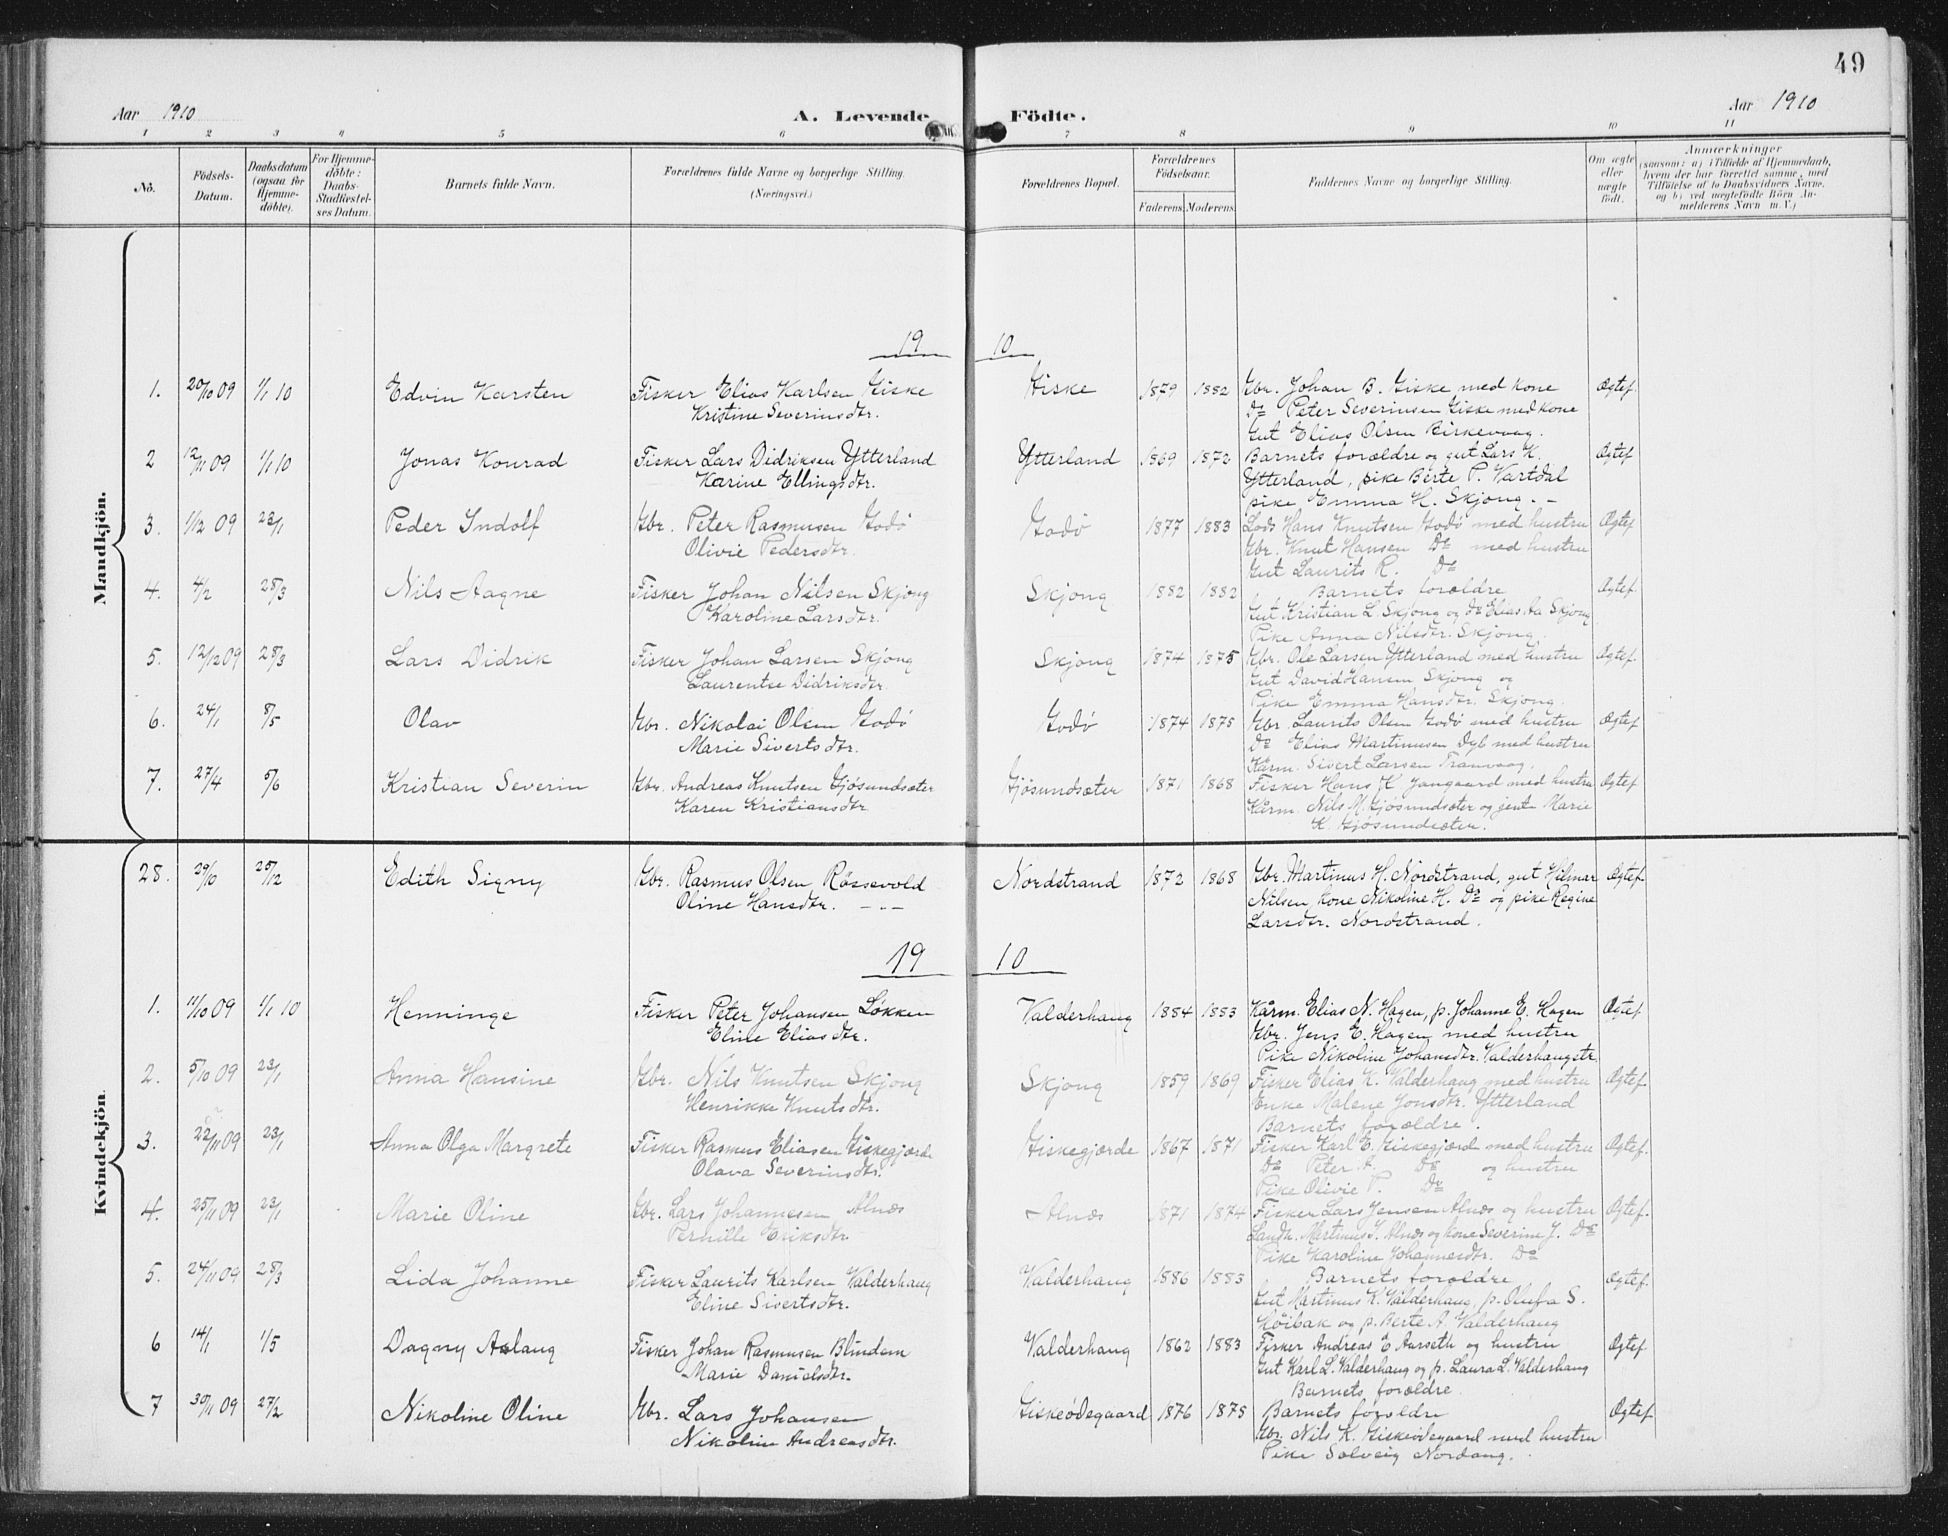 49
Aar 1910
A. Levende Födte.
Aar 1910
1 2 3 4 5 6 7 8 9 10 11
No.
Födsels-
Datum.
Daabsdatum
(ogsaa for
Hjemme-
döbte).
For Hjemme-
döbte:
Daabs-
Stadfæstel-
ses Datum.
Barnets fulde Navn.
Forældrenes fulde Navne og borgerlige Stilling.
(Næringsvei.)
Forældrenes Bopæl.
Forældrenes
Födselsaar.
Faderens. Moderens.
Faddernes Navne og borgerlige Stilling.
Om ægte
eller
uægte
födt.
Anmærkninger
(saasom: a) i Tilfælde af Hjemmedaab,
hvem der har forrettet samme, med
Tilföielse af to Daabsvidners Navne,
og b) ved uægtefödte Börn An-
melderens Navn m. V.)
Mandkjön.
19 10
1. 20/10 09 1/1 10 Edvin Karsten Fisker Elias Karlsen Giske Giske 1879 1882 Gbr. Johan B. Giske med kone Ægtef
Kristine Severinsdtr. Do Peter Severinsen Giske med kone
Gut Elias Olsen Birkevaag.
2 12/11 09 1/1 10 Jonas Konrad Fisker Lars Didriksen Ytterland Ytterland 1869 1872 Barnets forældre og gut Lars K. Ægtef
Karine Ellingsdtr. Ytterland, pike Berte P. Vartdal
pike Emma H. Skjong. -
3. 1/12 09 23/1 Peder Indolf Gbr. Peter Rasmusen Godø Godø 1877 1883 Lods Hans Knutsen Godø med hustru Ægtef
Olivie Pedersdtr. Gbr. Knut Hansen Do med hustru
Gut Laurits R. Do
4. 4/2 28/3 Nils Aagne Fisker Johan Nilsen Skjong Skjong 1882 1882 Barnets forældre Ægtef.
Karoline Larsdtr. Gut Kristian L. Skjong og do Elias Aa Skjong
Pike Anna Nilsdtr. Skjong.
5. 12/12 09 28/3 Lars Didrik Fisker Johan Larsen Skjong Skjong 1874 1875 Gbr. Ole Larsen Ytterland med hustru Ægtef.
Laurentse Didriksdtr. Gut David Hansen Skjong og
Pike Emma Hansdtr. Skjong.
6. 24/1 8/5 Olav Gbr. Nikolai Olsen Godø Godø 1874 1875 Gbr. Laurits Olsen Godø med hustru Ægtef
Marie Sivertsdtr. Do Elias Martinusen Dyb med hustru
Kårm. Sivert Larsen Tranvaag.
7. 27/4 5/6 Kristian Severin Gbr. Andreas Knutsen Gjøsundsæter Gjøsundsæter 1871 1868 Fisker Hans K. Jangaard med hustru Ægtef
Karen Kristiansdtr Kårm. Nils M. Gjøsundsæter og jent Marie
K. Gjøsundsæter.
Kvindekjön.
28. 29/10 25/12 Edith Signy Gbr. Rasmus Olsen Røssevold Nordstrand 1872 1868 Gbr. Martinus H. Nordstrand, gut Hilmar Ægtef
Oline Hansdtr. - - - Nilsen, kone Nikoline H. Do og pike Regine
Larsdtr. Nordstrand.
19 10
1. 11/10 09 1/1 10 Henninge Fisker Peter Johansen Løkken Valderhaug 1884 1883 Kårm. Elias N. Hagen, p. Johanne E. Hagen Ægtef
Eline Eliasdtr. Gbr. Jens E. Hagen med hustru
Pike Nikoline Johansdtr. Valderhaugstr.
2. 5/10 09 23/1 Anna Hansine Gbr. Nils Knutsen Skjong Skjong 1859 1869 Fisker Elias K. Valderhaug med hustru Ægtef
Henrikke Knutsdtr. Enke Malene Jonsdtr. Ytterland
Barnets forældre.
3. 22/11 09 23/1 Anna Olga Margrete Fisker Rasmus Eliasen Giskegjærde Giskegjærde 1867 1871 Fisker Karl E. Giskegjærde med hustru Ægtef.
Olava Severinsdtr. Do Peter A. Do og hustru
Pike Olivie P. Do
4. 25/11 09 23/1 Marie Oline Gbr. Lars Johannesen Alnæs Alnæs 1871 1874 Fisker Lars Jensen Alnæs og hustru Ægtef.
Pernille Eriksdtr. Landh. Martinus J. Alnæs og kone Severine J. Do
Pike Karoline Johannesdtr. Do
5. 24/11 09 28/3 Lida Johanne Fisker Laurits Karlsen Valderhaug Valderhaug 1886 1883 Barnets forældre Ægtef.
Eline Sivertsdtr. Gut Martinus K. Valderhaug, p. Olufa S.
Høibak og p. Berte A. Valderhaug
6 14/1 1/5 Dagny Aslaug Fisker Johan Rasmusen Blindem Valderhaug 1862 1883 Fisker Andreas E Aarseth og hustru Ægtef.
Marie Danielsdtr. Gut Karl L. Valderhaug og p. Laura L. Valderhaug
Barnets forældre.
7 30/11 09 27/2 Nikoline Oline Gbr. Lars Johansen Giskeødegaard 1876 1875 Barnets forældre Ægtef
Nikoline Andreasdtr. Gbr. Nils K. Giskeødegaard med hustru
Pike Solveig Nordang.